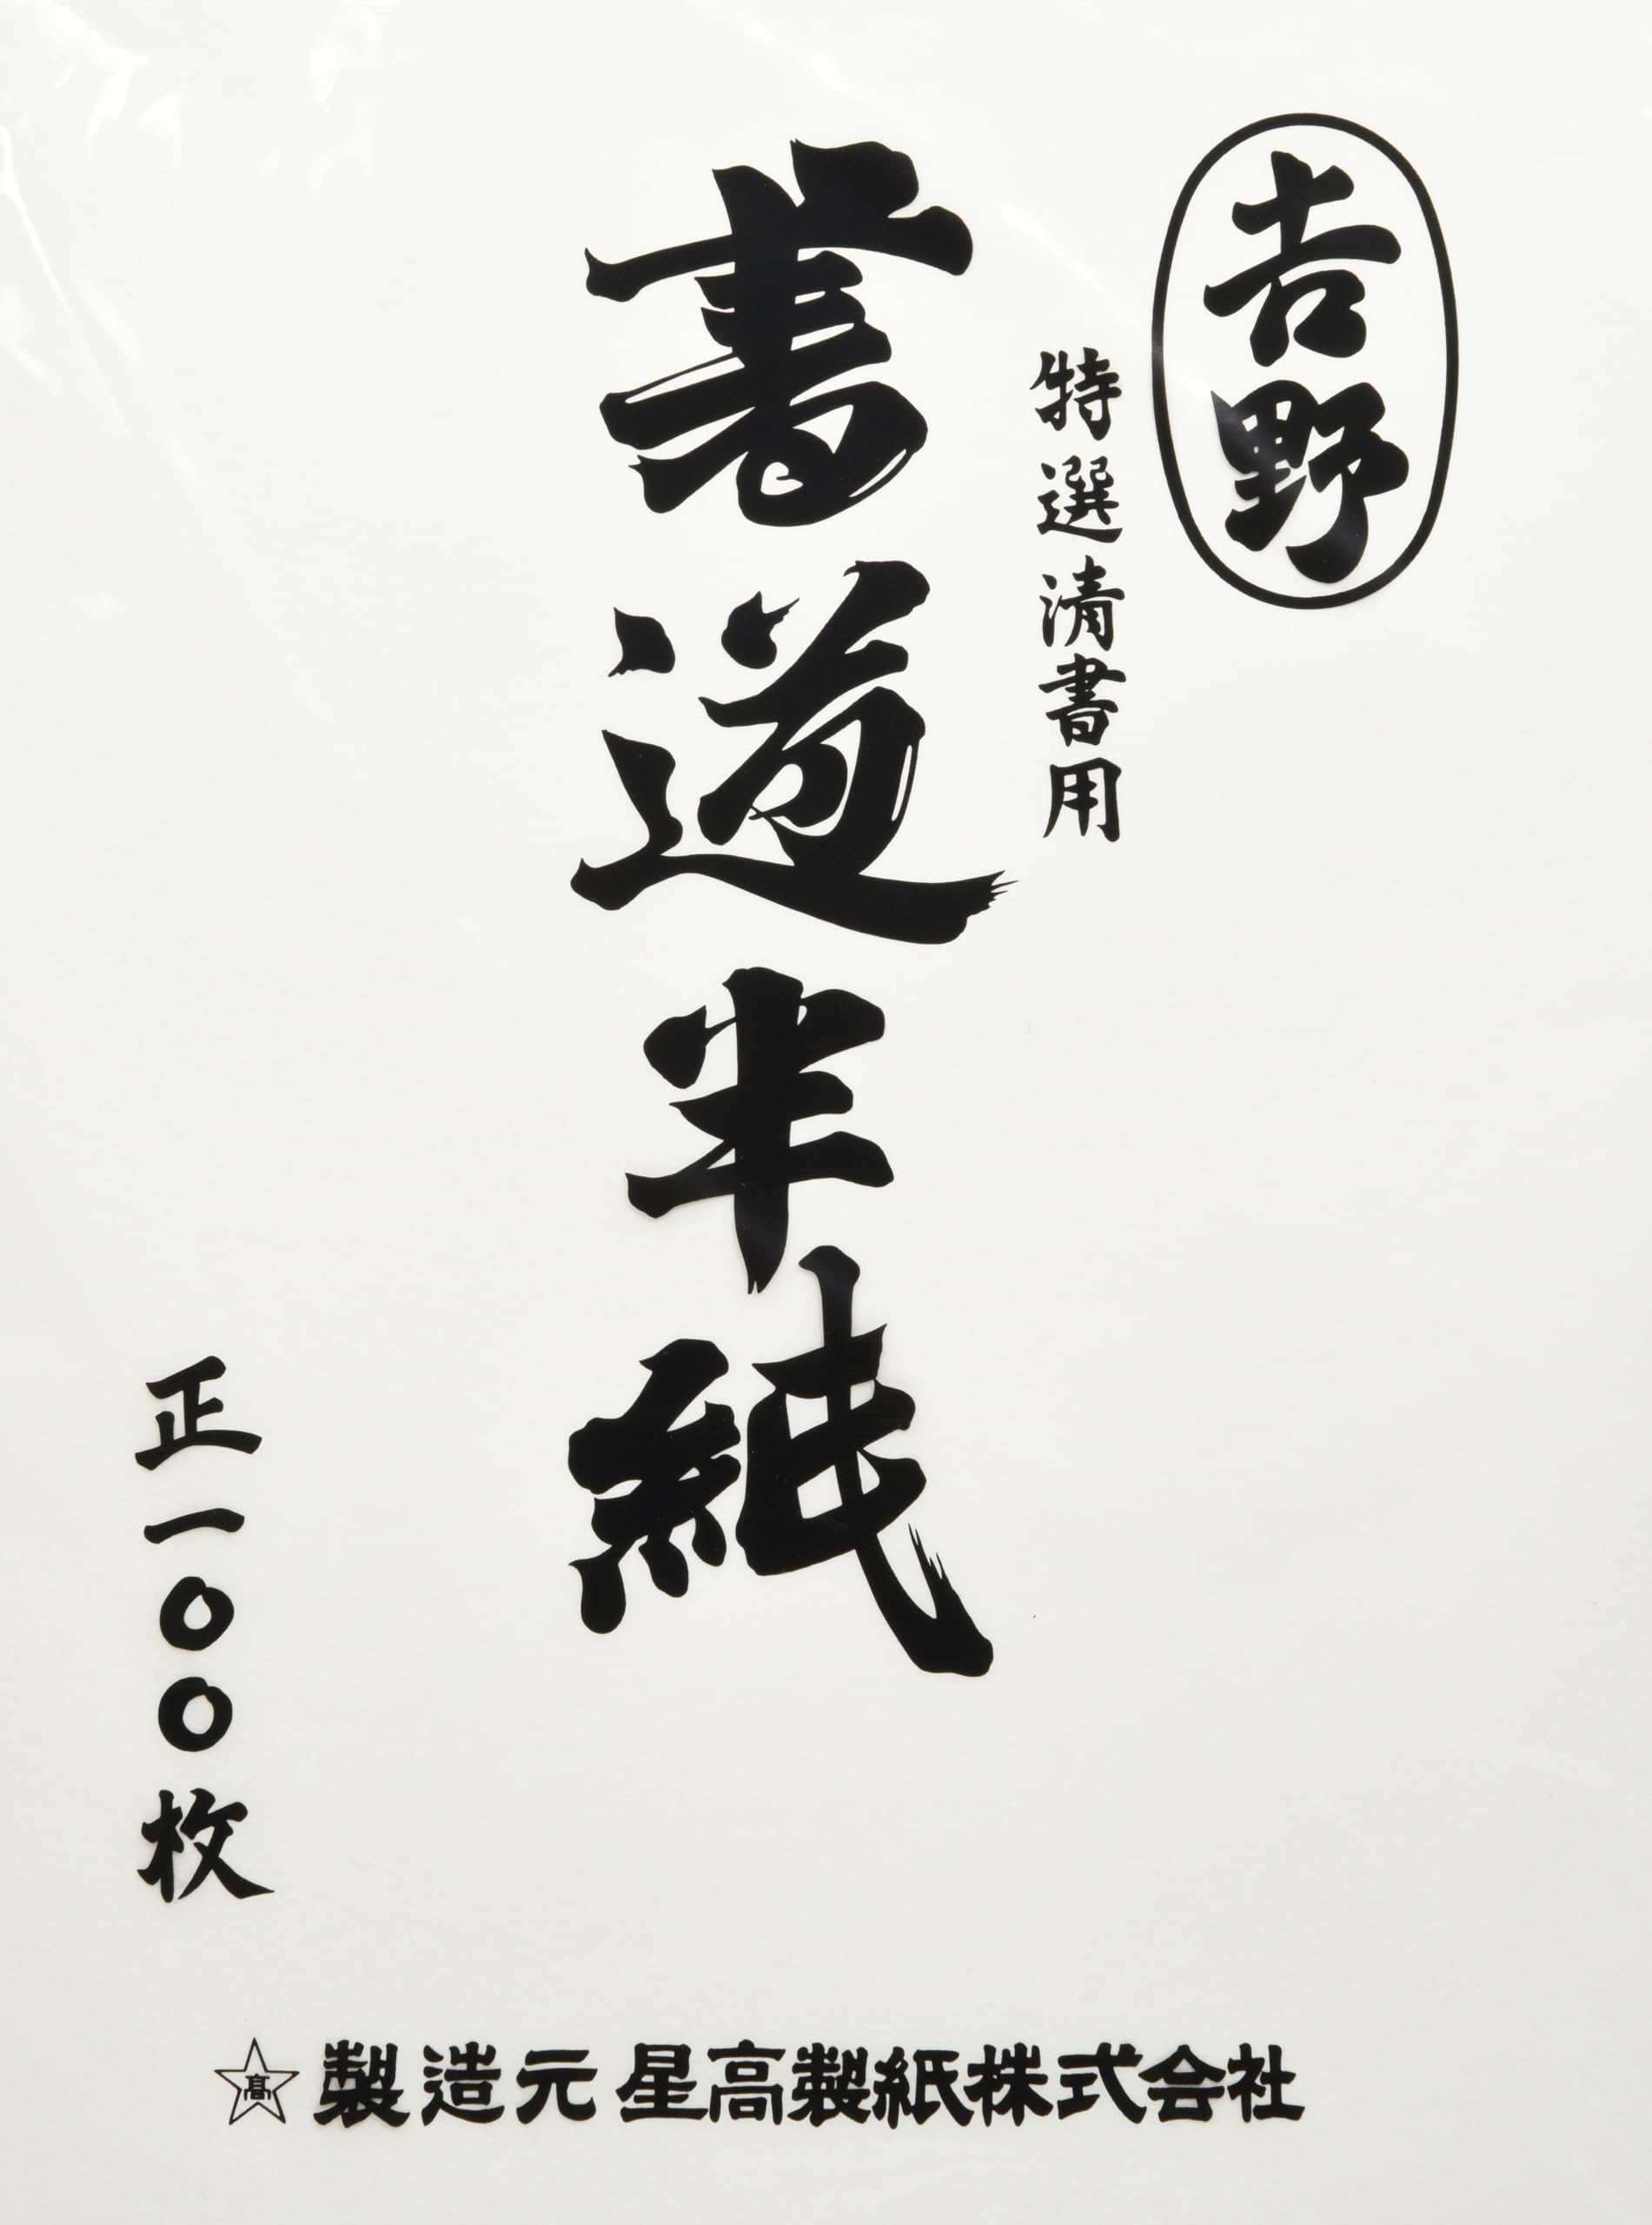 吉野
特選清書用
書道半紙
正一〇〇枚
髙 製造元 星高製紙株式会社